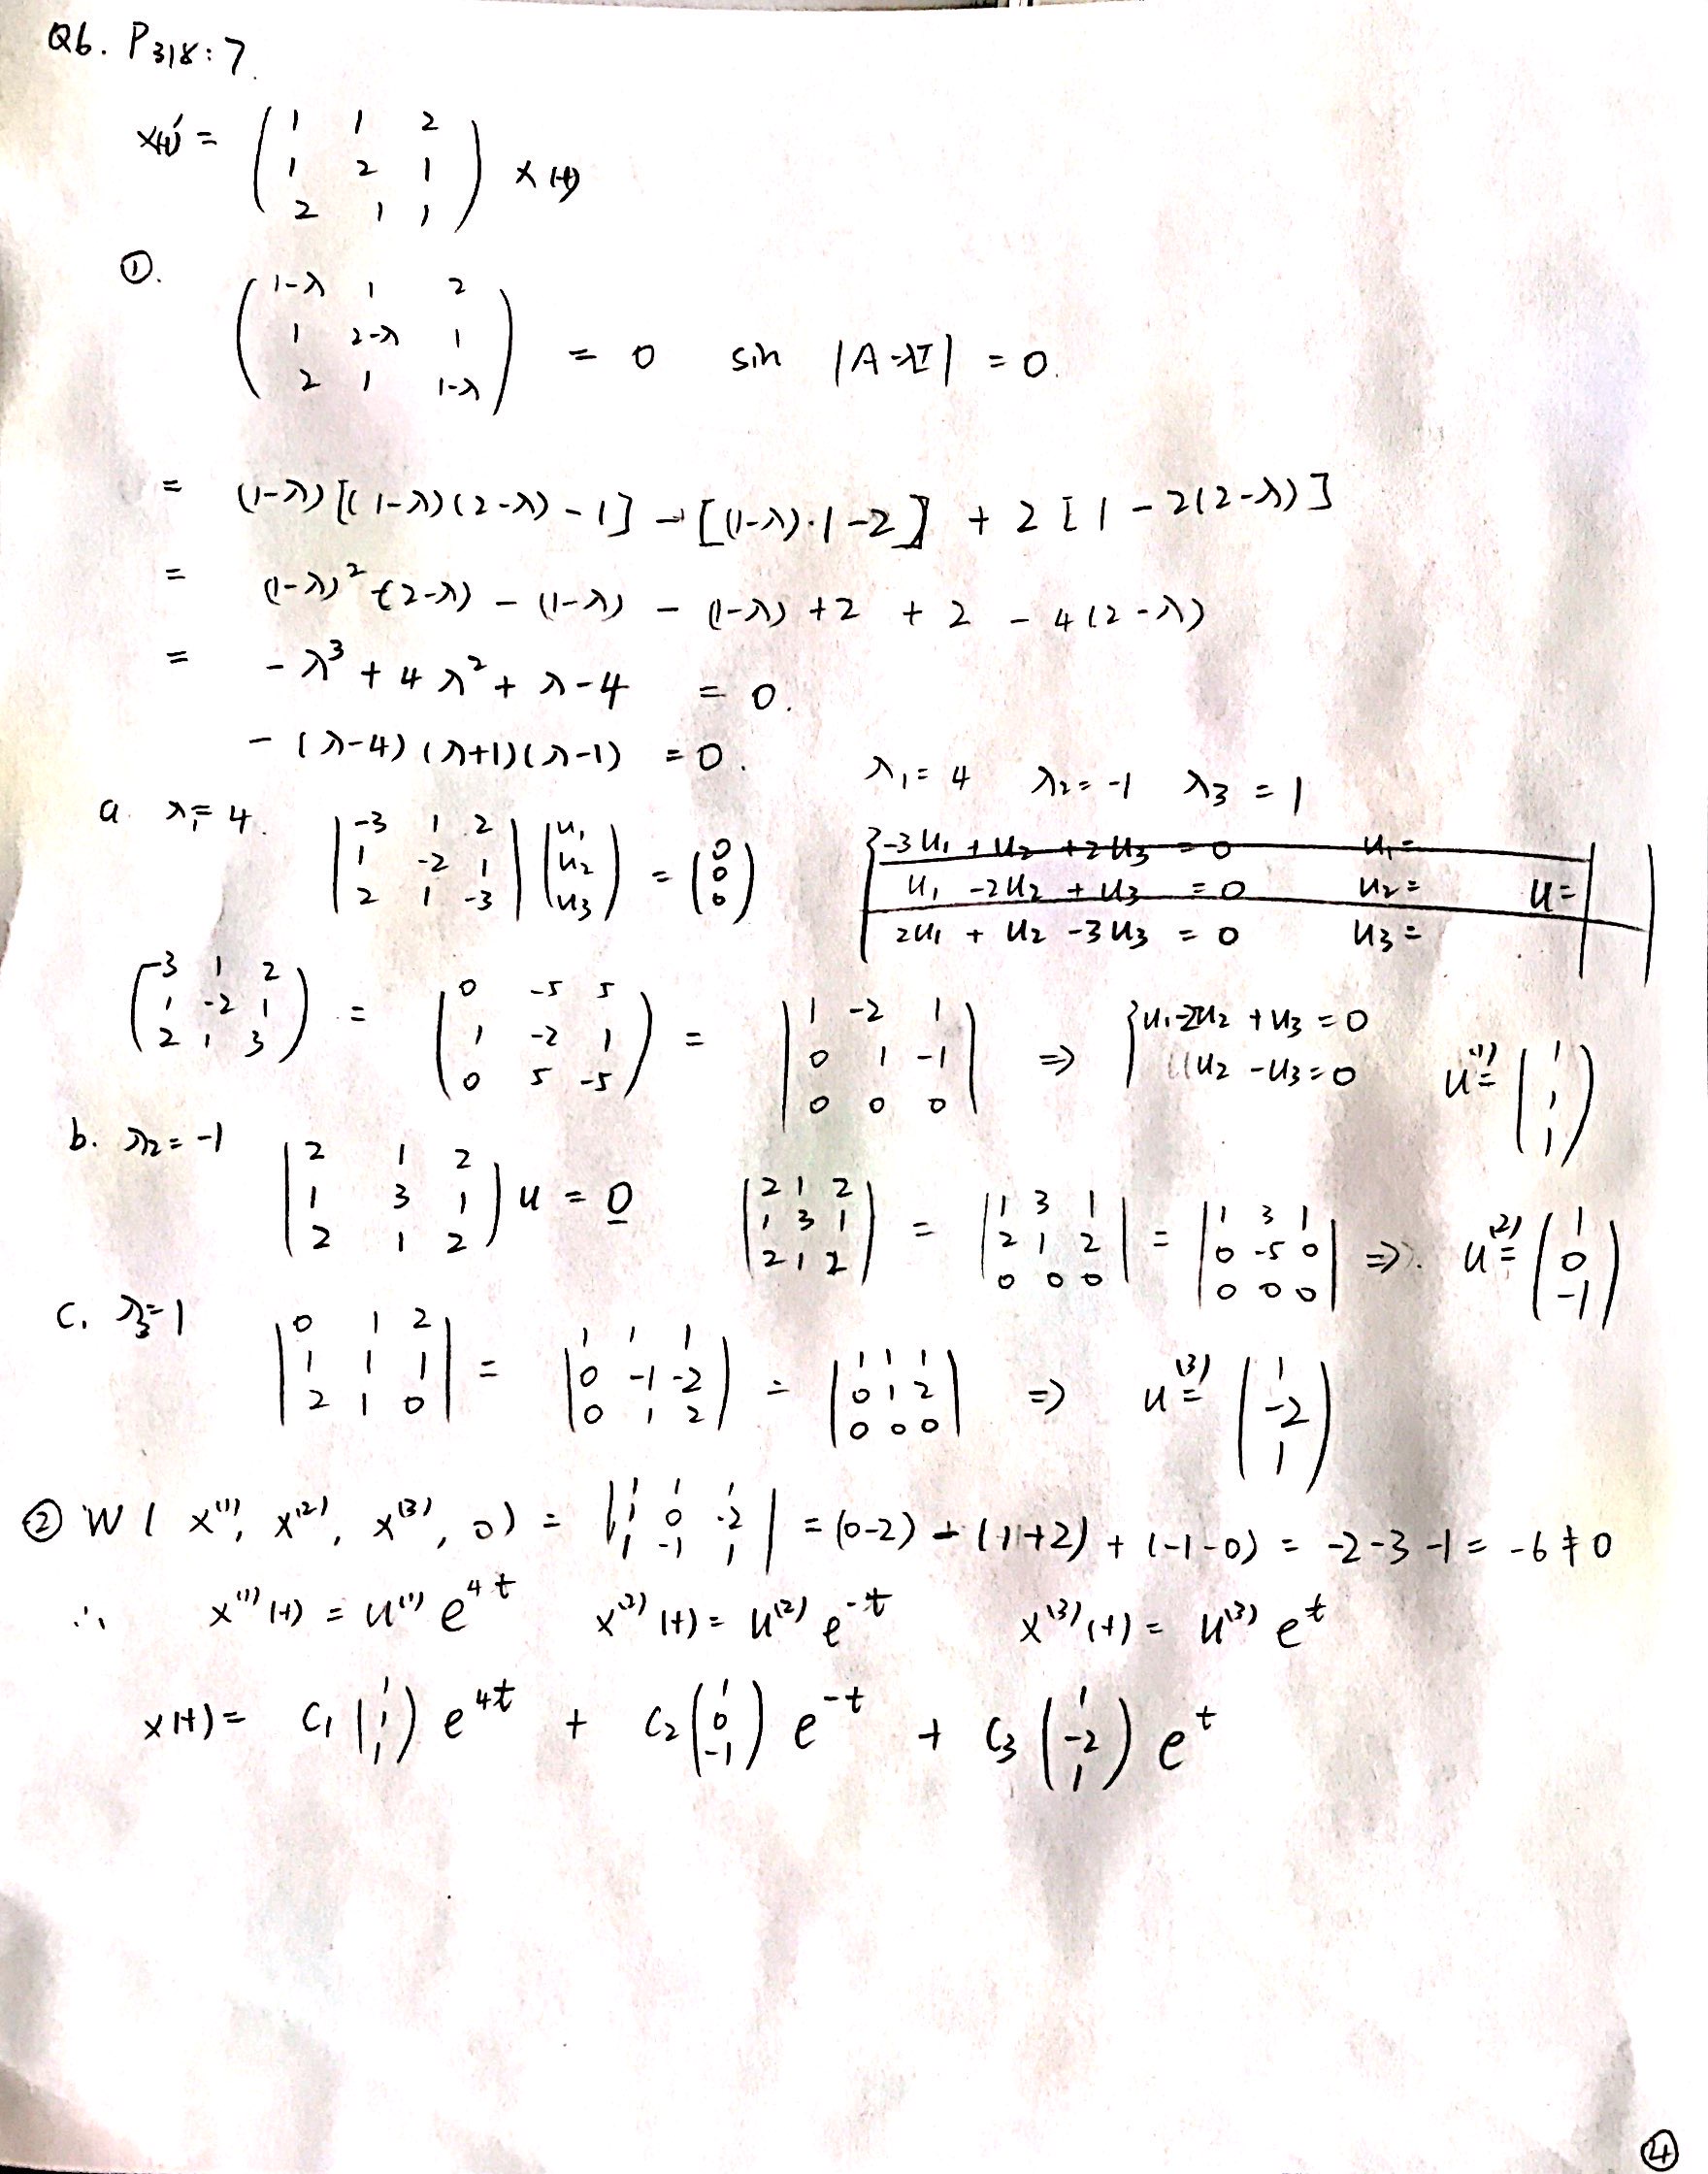 Q6. P318:7.
x(t)' = ( 1 1 2
1 2 1
2 1 1 ) x(t)
①.
( 1-λ 1 2
1 2-λ 1
2 1 1-λ ) = 0 sin |A-λI| = 0.
= (1-λ)[(1-λ)(2-λ)-1] - [(1-λ)·1-2] + 2[1-2(2-λ)]
= (1-λ)²(2-λ) - (1-λ) - (1-λ)+2 + 2 - 4(2-λ)
= -λ³ + 4λ² + λ-4 = 0.
-(λ-4)(λ+1)(λ-1) = 0. λ₁ = 4 λ₂ = -1 λ₃ = 1
a. λ₁ = 4. | -3 1 2
1 -2 1
2 1 -3 | | u₁
u₂
u₃ ) = ( 0
0
0 )
{ -3u₁ + u₂ + 2u₃ = 0 u₁ =
u₁ - 2u₂ + u₃ = 0 u₂ = u = | |
2u₁ + u₂ - 3u₃ = 0 u₃ =
( -3 1 2
1 -2 1
2 1 3 ) = ( 0 -5 5
1 -2 1
0 5 -5 ) = | 1 -2 1
0 1 -1
0 0 0 | ⇒ { u₁-2u₂ + u₃ = 0
u₂ - u₃ = 0 u⁽¹⁾ = ( 1
1
1 )
b. λ₂ = -1 | 2 1 2
1 3 1
2 1 2 ) u = 0 ( 2 1 2
1 3 1
2 1 2 ) = | 1 3 1
2 1 2
0 0 0 | = | 1 3 1
0 -5 0
0 0 0 | ⇒. u⁽²⁾ = ( 1
0
-1 )
c. λ₃ = 1 | 0 1 2
1 1 1
2 1 0 | = | 1 1 1
0 -1 -2
0 1 2 ) = | 1 1 1
0 1 2
0 0 0 | ⇒ u⁽³⁾ = ( 1
-2
1 )
② W( x⁽¹⁾, x⁽²⁾, x⁽³⁾, 0) = | 1 1 1
1 0 -2
1 -1 1 | = (0-2) - (1+2) + (-1-0) = -2-3-1 = -6 ≠ 0
∴ x⁽¹⁾(t) = u⁽¹⁾ e^4t x⁽²⁾(t) = u⁽²⁾ e^-t x⁽³⁾(t) = u⁽³⁾ e^t
x(t) = C₁ ( 1
1
1 ) e^4t + C₂ ( 1
0
-1 ) e^-t + C₃ ( 1
-2
1 ) e^t
④